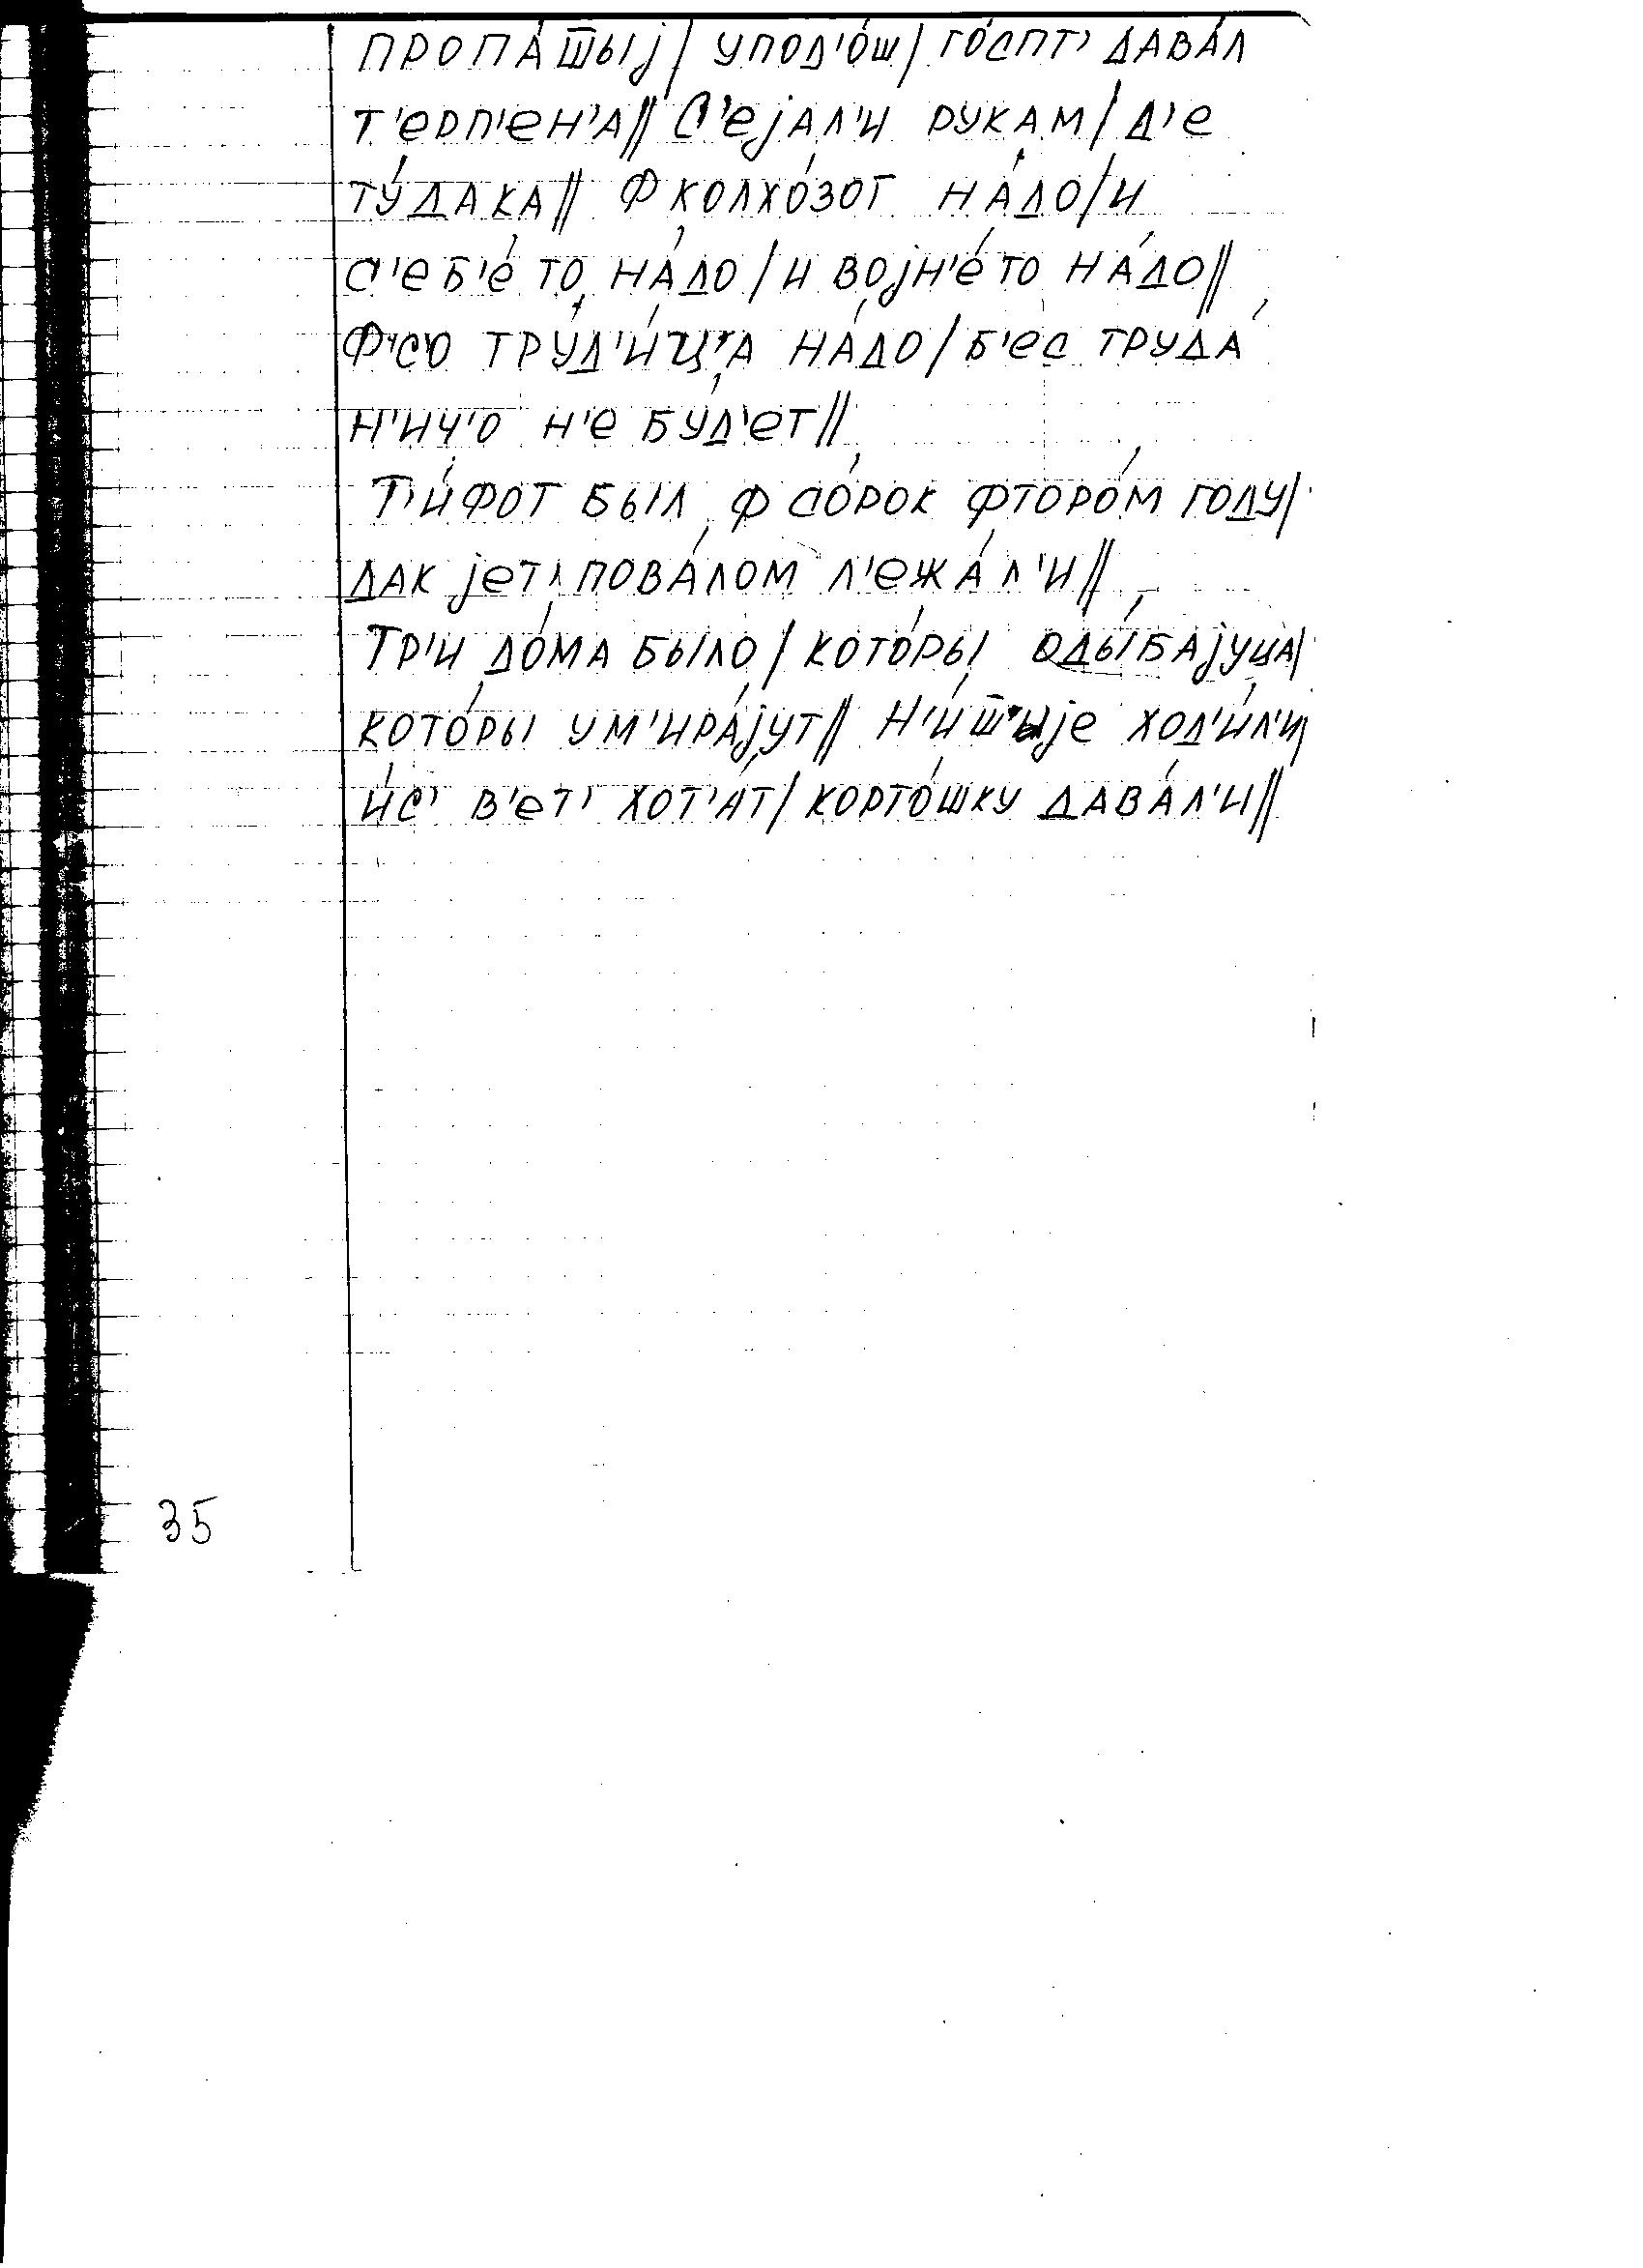 пропа́т̅ыј / упод'о́ш / го́спт' дава́л
т'ерп'ен'а // С'ејал'и рукам / д'е
ту́дака // Ф колхо́зог на́до / и
с'еб'е́ то на́до / и војн'е́ то на́до //
Ф'с'о тру́д'и́ц̅а на́до / б'ес труда́
н'ич'о н'е бу́д'ет //
Т'и́фот был ф со́рок фторо́м году /
дак јет' пова́лом л'ежа́л'и //
Тр'и до́ма было / кото́ры оды́бајуца /
кото́ры ум'ира́јут // Н'и́т̅ыје ход'и́л'и /
и́с' в'ет' хот'а́т / корто́шку дава́л'и //
35